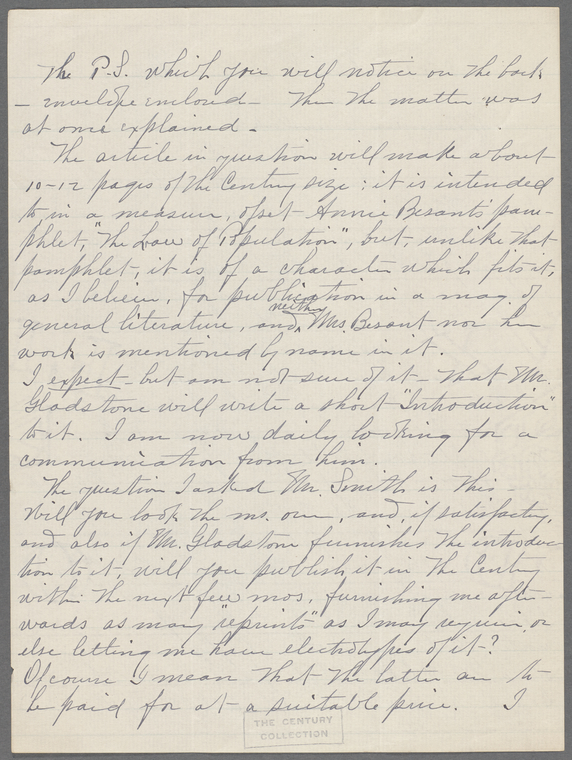 The P.S. which you will notice on the back
- envelope enclosed - Then the matter was
at once explained -
The article in question will make about
10-12 pages of the Century size: it is intended
to, in a measure, ofset Annie Besant's pam-
phlet, "The Law of Population", but, unlike that
pamphlet, it is of a character which fits it,
as I believe, for publication in a mag. of
general literature, and neither Mrs. Besant nor her
work is mentioned by name in it.
I expect - but am not sure of it - that Mr.
Gladstone will write a short "Introduction"
to it. I am now daily looking for a
communication from him.
The question I asked Mr. Smith is this -
Will you look the ms. over, and, if satisfactory,
and also if Mr. Gladstone furnishes the introduc-
tion to it, will you publish it in The Century
within the next few mos., furnishing me after-
wards as many "reprints" as I may require, or
else letting me have electrotypes of it?
Of course I mean that the latter are to
be paid for at a suitable price. I
THE CENTURY
COLLECTION